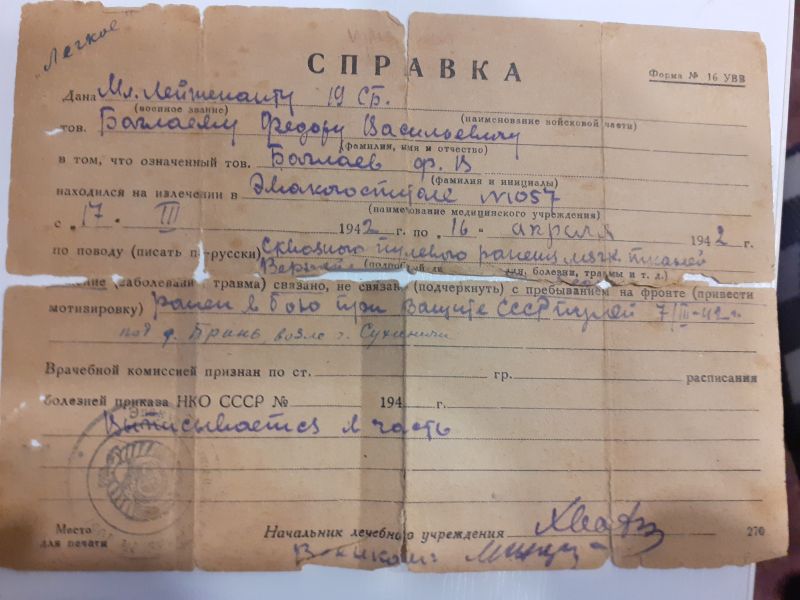 „Легкое"
СПРАВКА
Форма № 16 УВВ
Дана Мл. Лейтенанту 19 СБ.
(военное звание) (наименование войсковой части)
тов. Баглаеву Федору Васильевичу
(фамилия, имя и отчество)
в том, что означенный тов. Баглаев Ф. В
(фамилия и инициалы)
находился на излечении в Эвакогоспитале №1057
(наименование медицинского учреждения)
с „17" III 1942 г. по „16" апреля 1942 г.
по поводу (писать по-русски) Сквозного пулевого ранения мягк тканей
болезни, травмы и т. д.)
(заболевание травма) связано, не связано (подчеркнуть) с пребыванием на фронте (привести
мотивировку) ранен в бою при Защите СССР пулей 7/III-42 г.
под д. Брынь возле г. Сухиничи
Врачебной комиссией признан по ст. гр. расписания
болезней приказа НКО СССР № 194 г.
Выписывается в часть
Место
для печати
Начальник лечебного учреждения
270